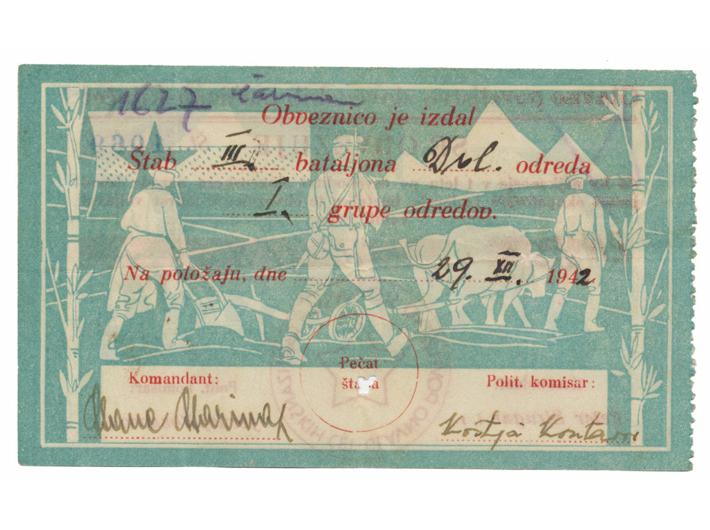 1627
Obveznico je izdal
Štab III. bataljona Dol. odreda
I. grupe odredov.
Na položaju, dne 29. XII. 1942
Komandant: Pečat Polit. komisar:
štaba
Kostja